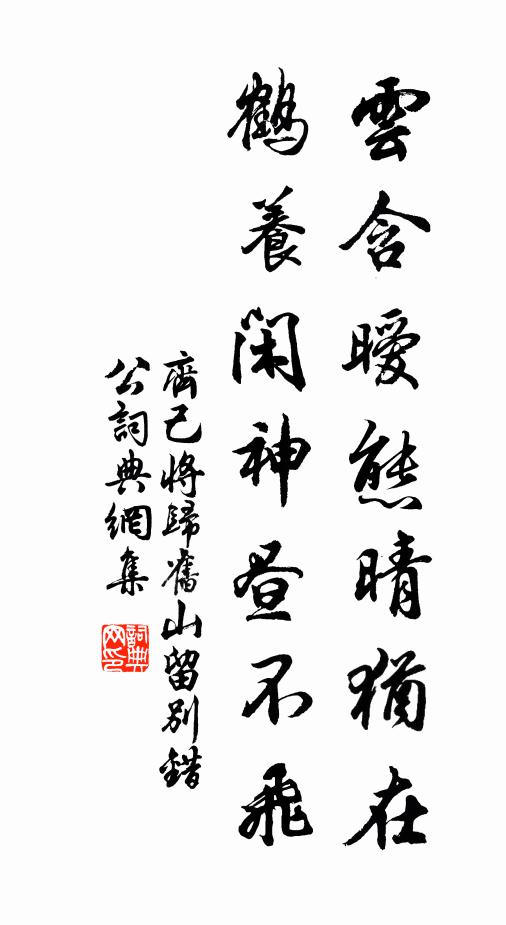 雲含曖態晴猶在
鶴養閑神晝不飛
齊己將歸舊山留別錯
公詞典網集
詞典
网印